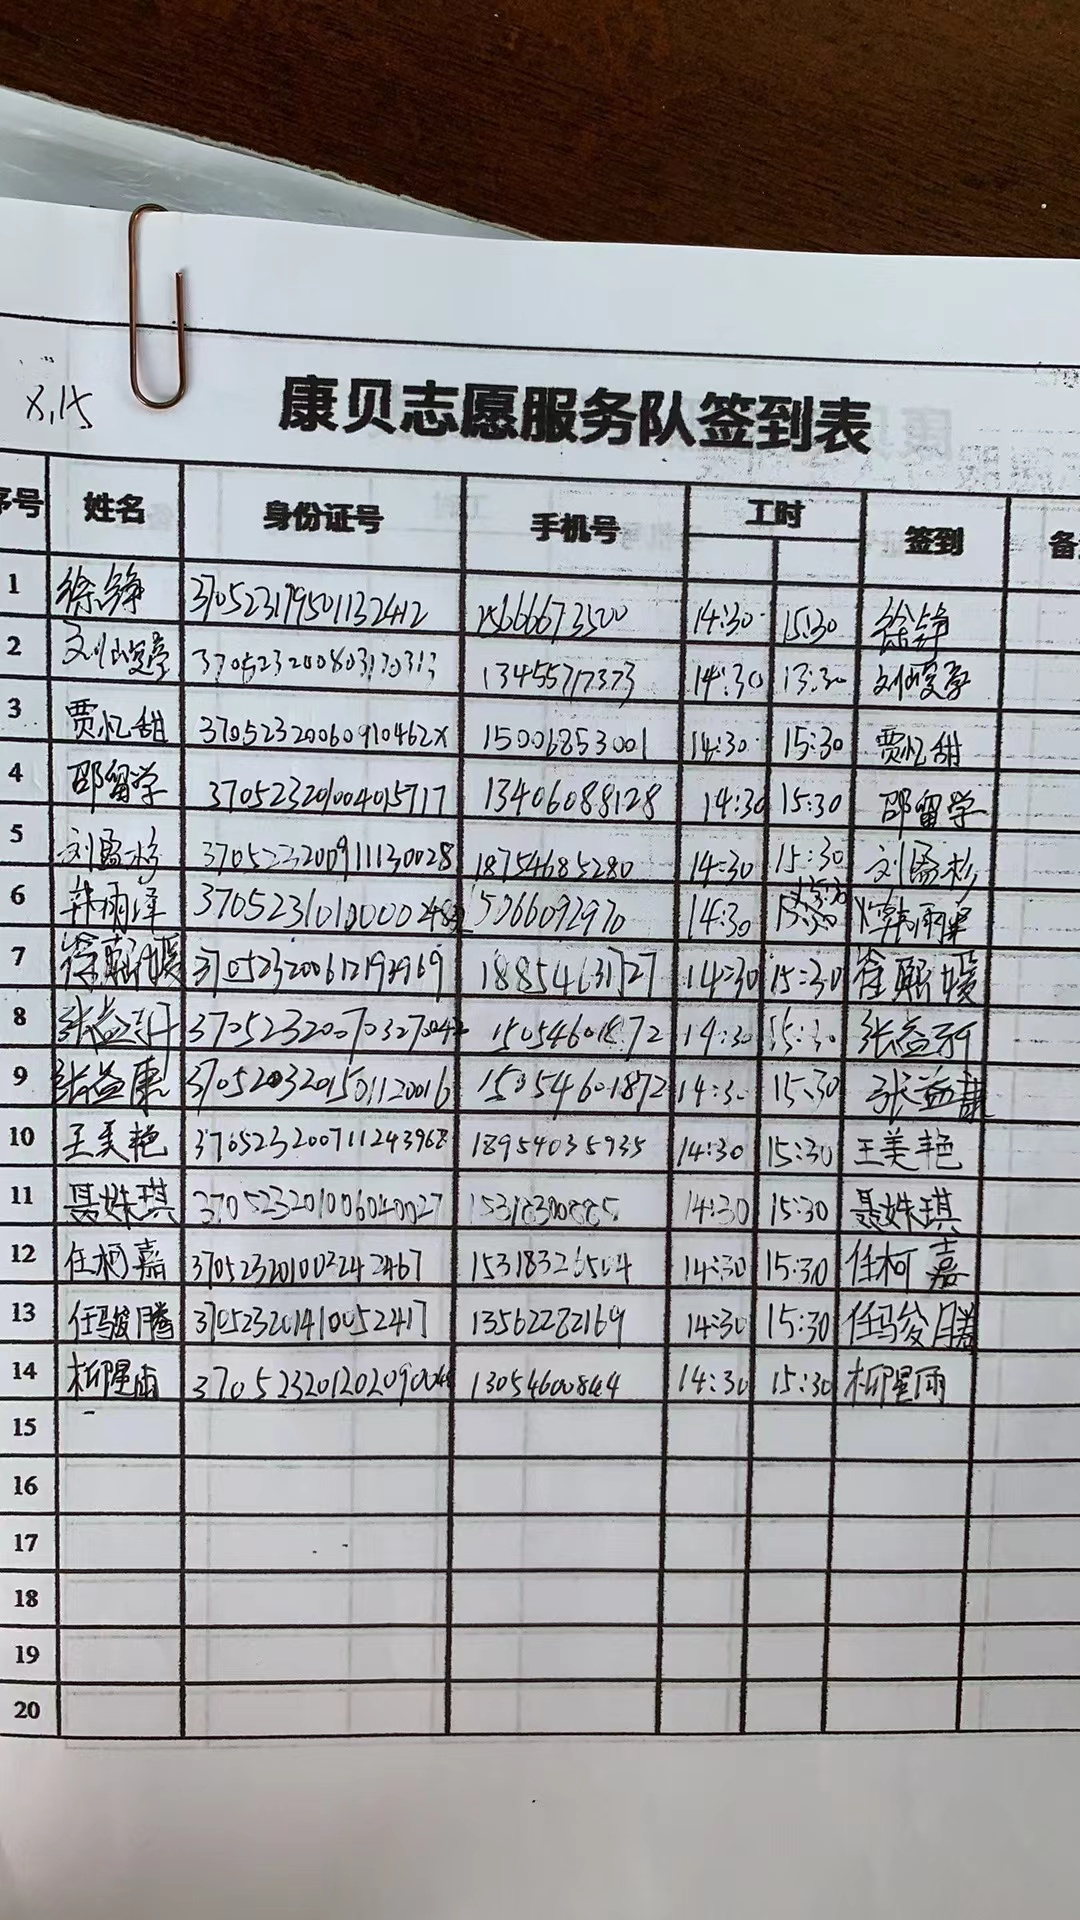 8.15
康贝志愿服务队签到表
序号 姓名 身份证号 手机号 工时 签到
1 徐铮 370523179501132412 14:30 15:30 徐铮
2 13455717373 14:30 13:30
3 贾忆甜 37052320060910462X 15006853001 14:30 15:30 贾忆甜
4 邵留学 370523201004015717 13406088128 14:30 15:30 邵留学
5 370523200911130028 18754685280 14:30 15:30
6 韩雨泽 5066092970 14:30 15:30 韩雨泽
7 370523200612192969 18854631727 14:30 15:30
8 15054601872 14:30 15:30
9 张益康 3705203201501120016 15054601872 14:30 15:30 张益康
10 王美艳 370523200711243968 18954035935 14:30 15:30 王美艳
11 聂姝琪 370523201006040027 15318300885 14:30 15:30 聂姝琪
12 任柯嘉 370523201002242467 15318326504 14:30 15:30 任柯嘉
13 任骏腾 370523201410052417 13562282169 14:30 15:30 任骏腾
14 柳星雨 13054600844 14:30 15:30 柳星雨
15
16
17
18
19
20